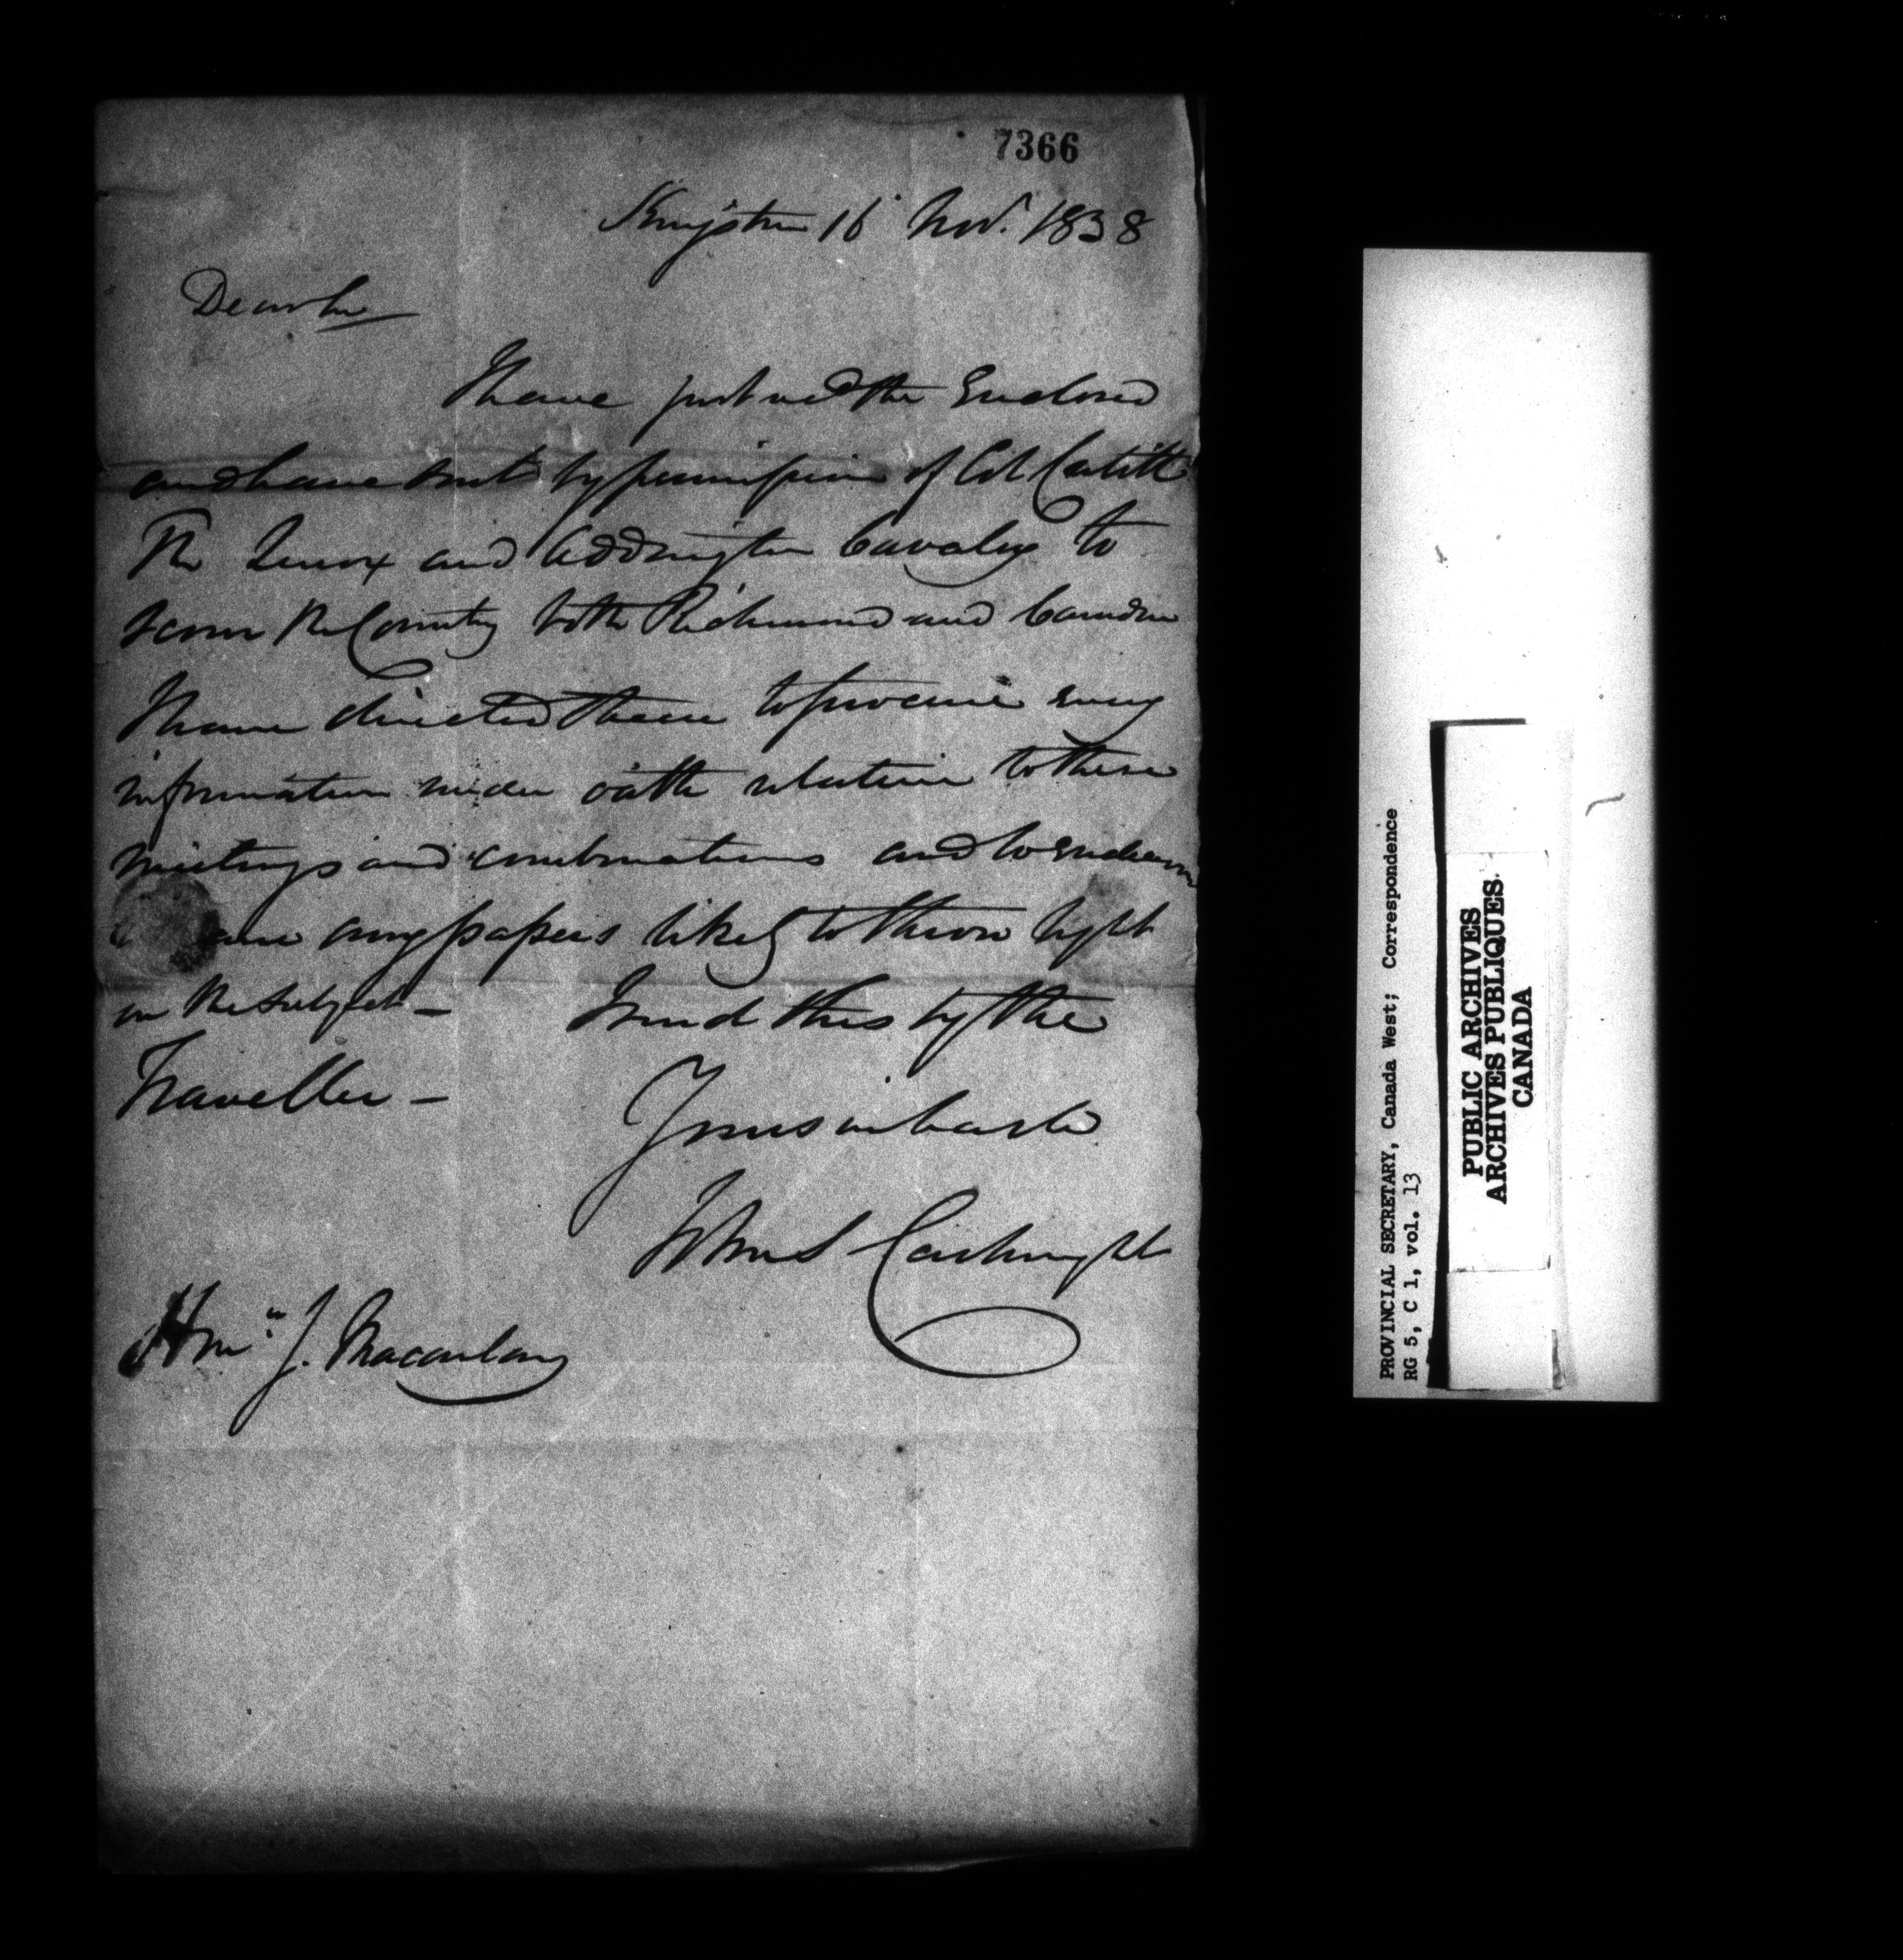 7366
Kingston 16 Nov. 1838
Dear Sir
I have just recd the Enclosed
and have sent by permission of Col Cartitt
The Lenox and Addington Cavalry to
scour the Country both Richmond and Camden
I have directed them to procure every
information under oath relative to these
meetings and combinations and to endeavor
any papers likely to throw light
on the subject —
I send this by the
Traveller —
Yours in haste
John S Cartwright
Honble J. Macaulay
PROVINCIAL SECRETARY, Canada West; Correspondence
RG 5, C 1, vol. 13
PUBLIC ARCHIVES
ARCHIVES PUBLIQUES
CANADA